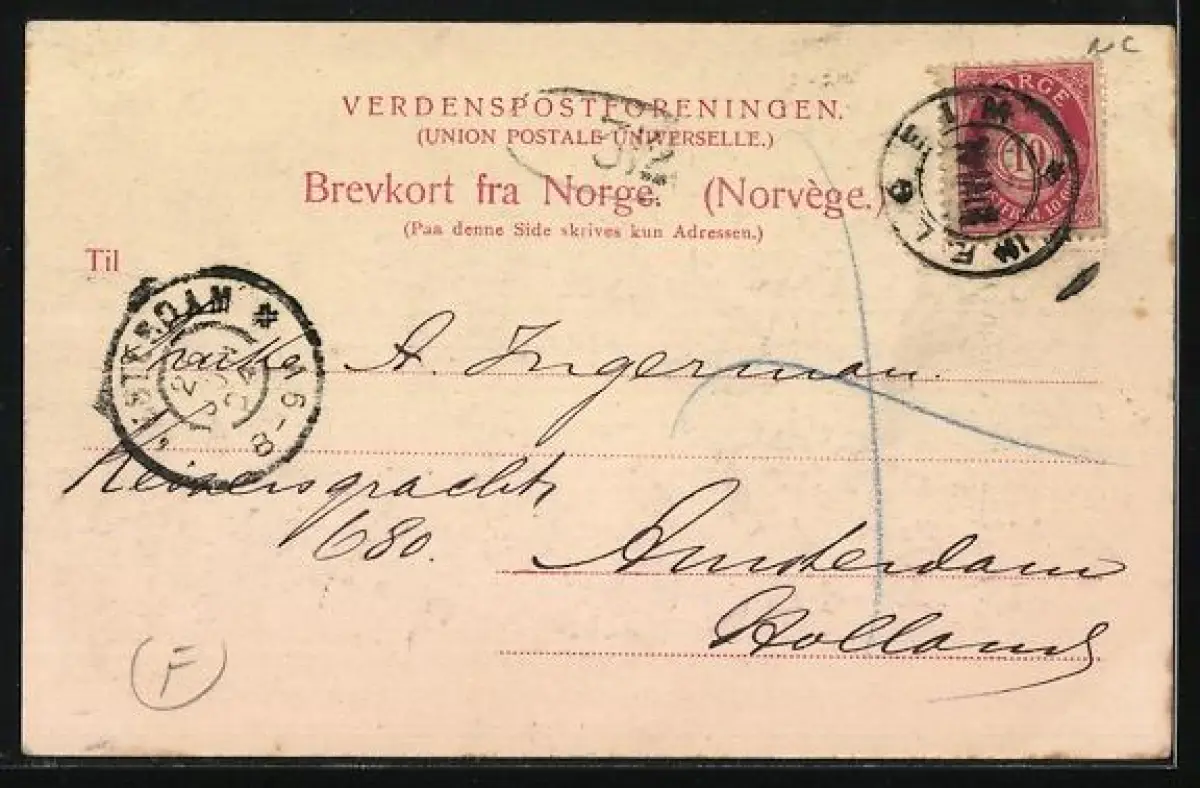 NC
NORGE
10
VERDENSPOSTFORENINGEN.
(UNION POSTALE UNIVERSELLE.)
Brevkort fra Norge. (Norvège.)
(Paa denne Side skrives kun Adressen.)
Til
8-9 V
A. Ingerman.
Keizersgracht
680.
Amsterdam
Holland
F